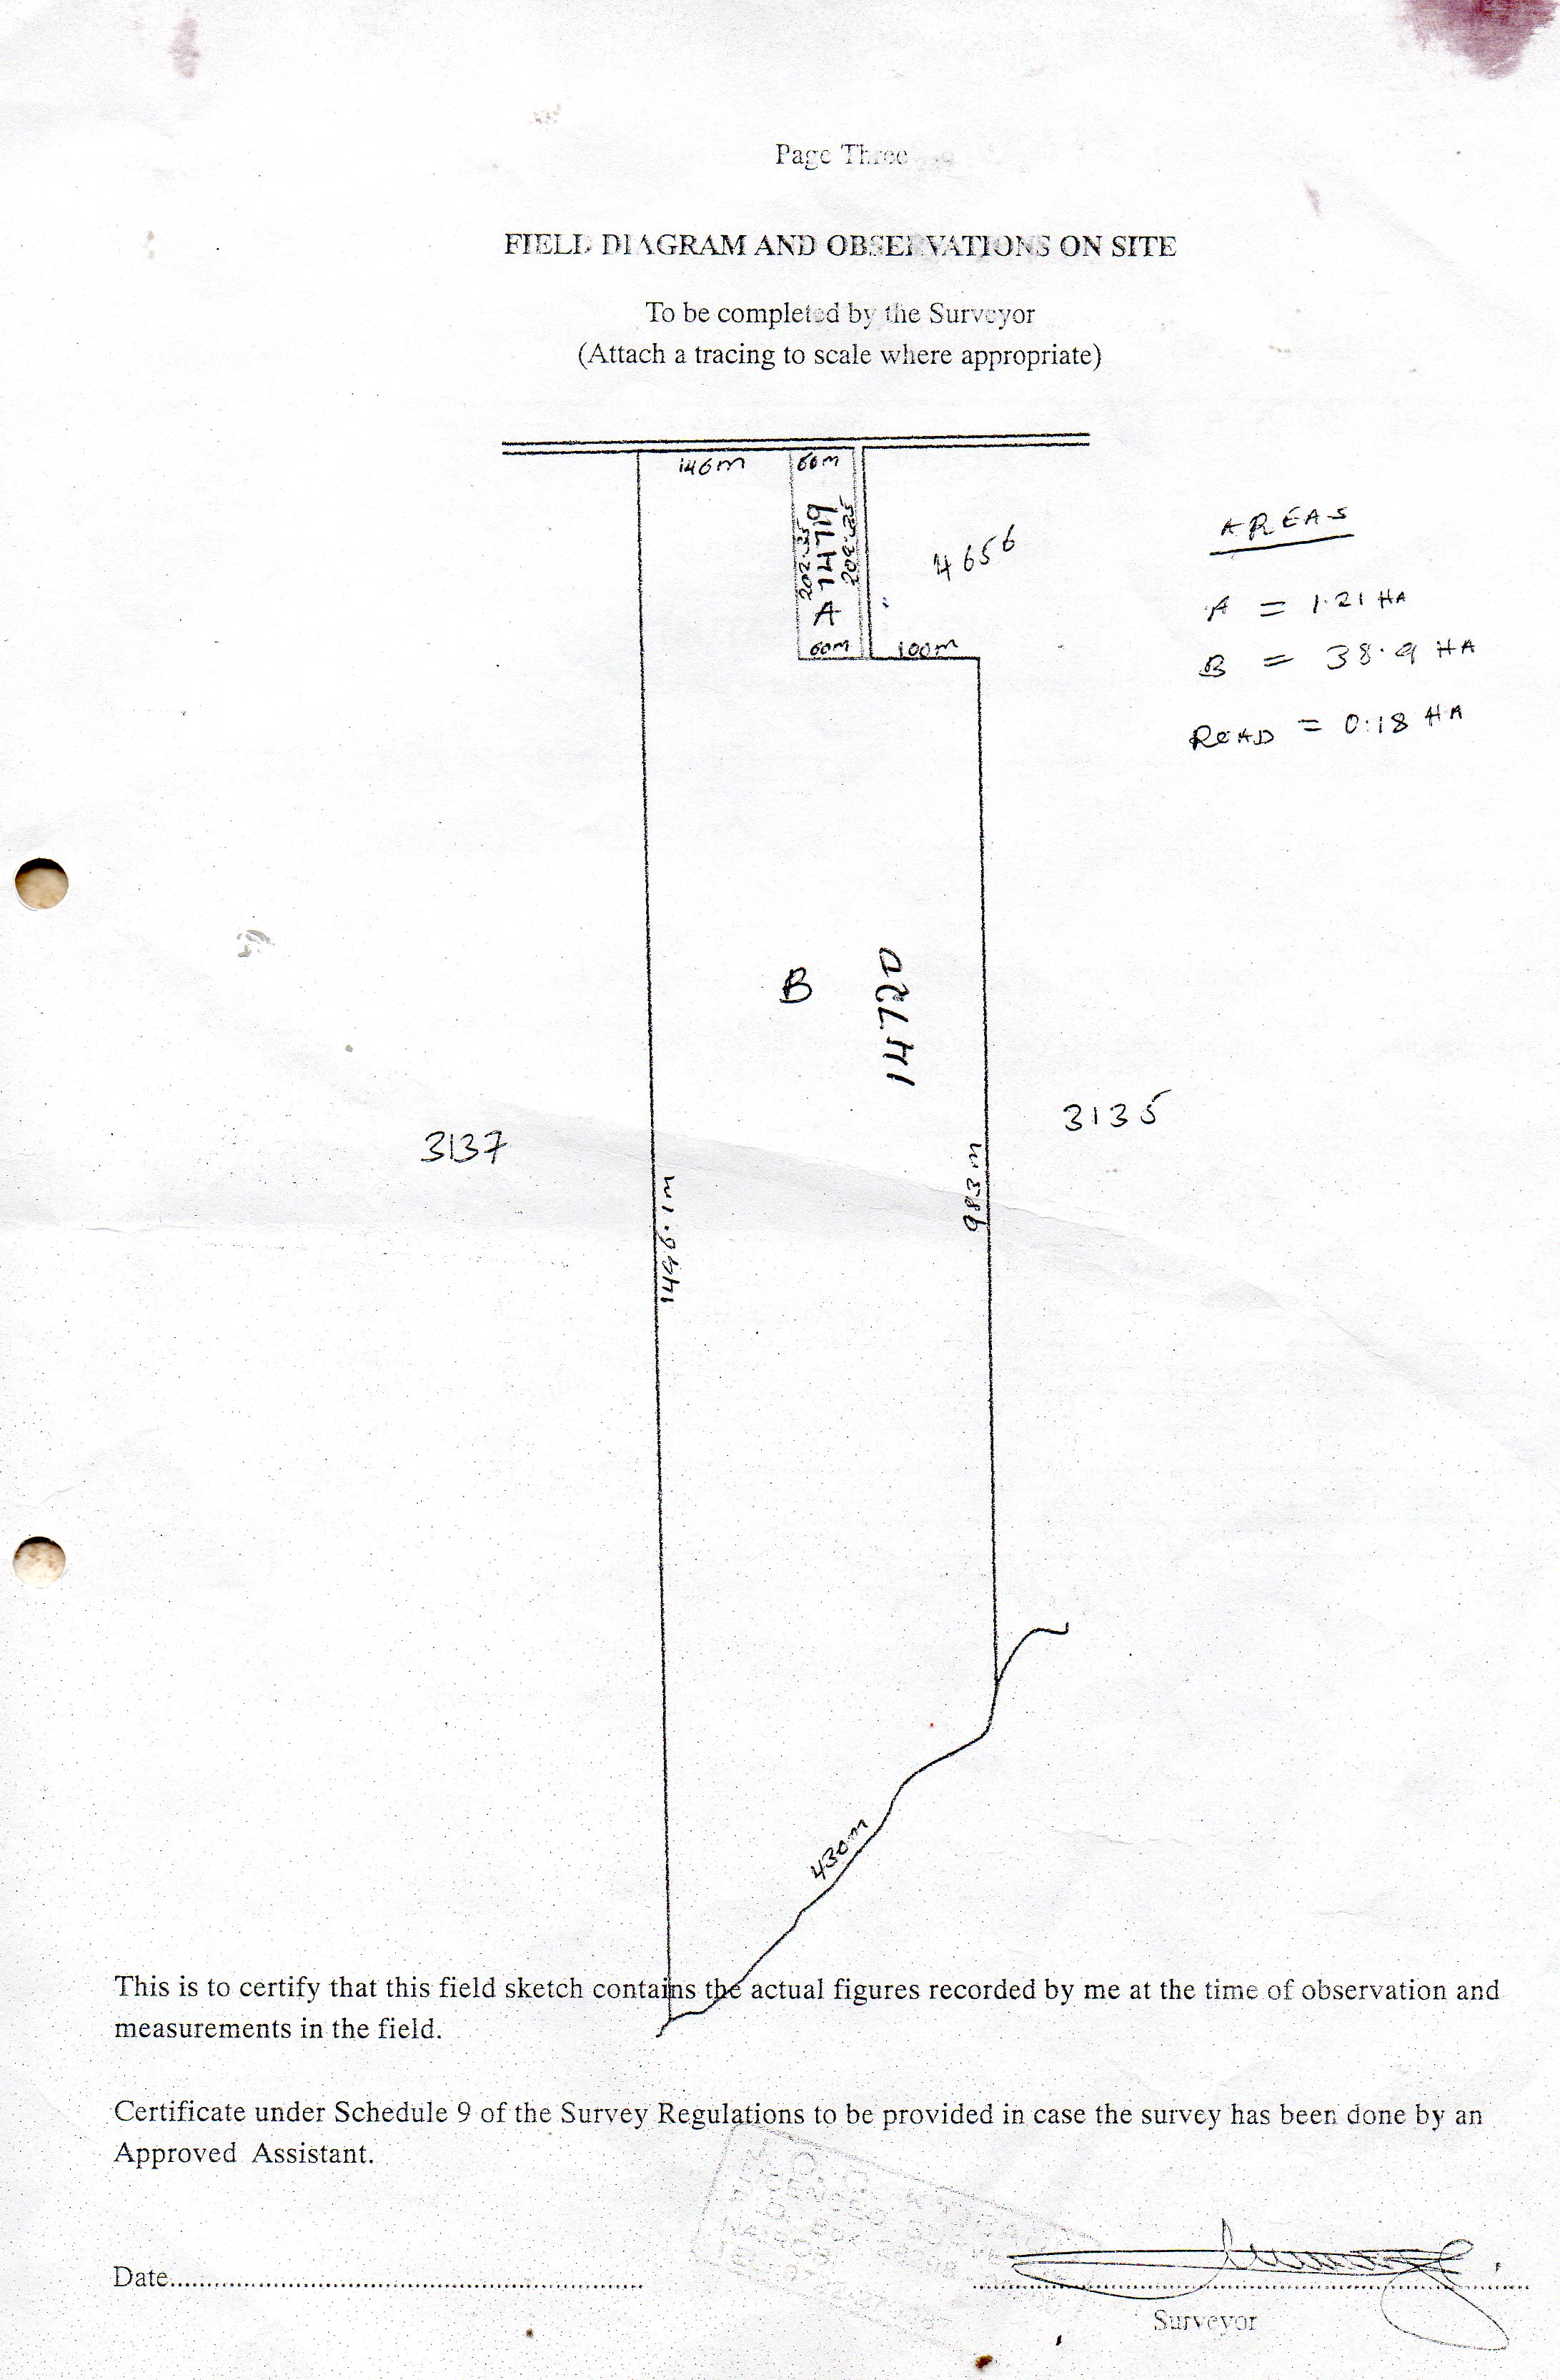 Page Three
FIELD DIAGRAM AND OBSERVATIONS ON SITE
To be completed by the Surveyor
(Attach a tracing to scale where appropriate)
146m
60m
202.25
14719
202.25
A
60m
100m
4656
AREAS
A = 1.21 HA
B = 38.9 HA
ROAD = 0.18 HA
B
14720
3137
3135
1496.1m
983m
430m
This is to certify that this field sketch contains the actual figures recorded by me at the time of observation and
measurements in the field.
Certificate under Schedule 9 of the Survey Regulations to be provided in case the survey has been done by an
Approved Assistant.
Date
Surveyor